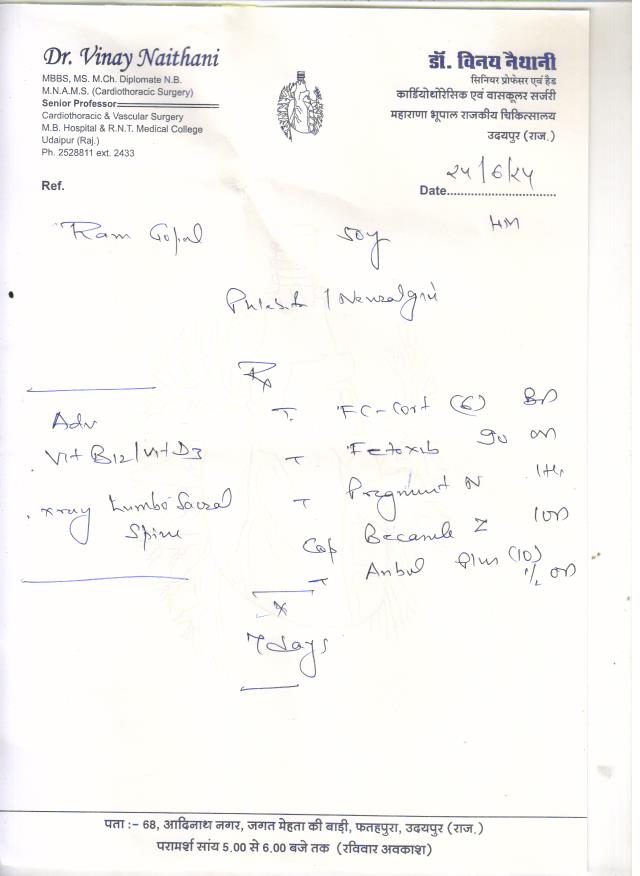 Dr. Vinay Naithani
MBBS, MS. M.Ch. Diplomate N.B.
M.N.A.M.S. (Cardiothoracic Surgery)
Senior Professor
Cardiothoracic & Vascular Surgery
M.B. Hospital & R.N.T. Medical College
Udaipur (Raj.)
Ph. 2528811 ext. 2433
डॉ. विनय नैथानी
सिनियर प्रोफेसर एवं हैड
कार्डियोथोरेसिक एवं वासकूलर सर्जरी
महाराणा भूपाल राजकीय चिकित्सालय
उदयपुर (राज.)
Ref.
Date.............................. २५/6/२५
Ram Gopal 50y HM
Adv
Vit B12/Vit D3
xray Lumbo Sacral
Spine
Rx
T. (6) BD
T 90 OD
T N
Cap Z 1OD
T Plus (10)
½ OD
x
7 days
पता :– 68, आदिनाथ नगर, जगत मेहता की बाड़ी, फतहपुरा, उदयपुर (राज.)
परामर्श सांय 5.00 से 6.00 बजे तक (रविवार अवकाश)